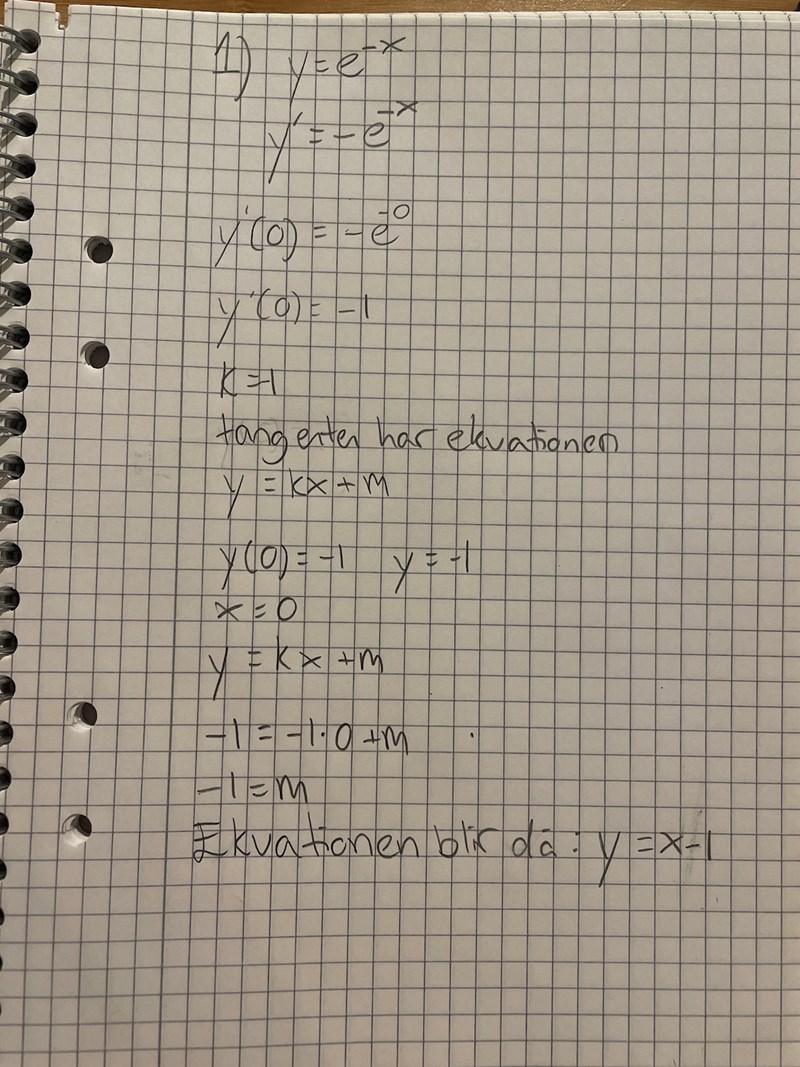 1) y = e^-x
y' = -e^-x
y'(0) = -e^-0
y'(0) = -1
k = -1
tangenten har ekvationen
y = kx + m
y(0) = -1 y = -1
x = 0
y = kx + m
-1 = -1·0 + m
-1 = m
Ekvationen blir då: y = x-1